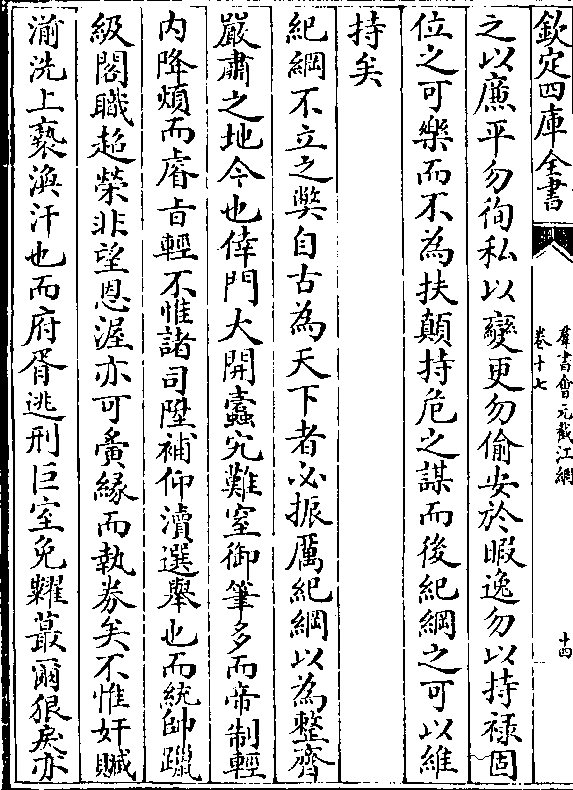 欽定四庫全書
羣書會元截江網
卷十七
十四
之以廉平勿徇私以變更勿偷安於暇逸勿以持禄固
位之可樂而不為扶顛持危之謀而後紀綱之可以維
持矣
紀綱不立之弊自古為天下者必振厲紀綱以為整齊
嚴肅之地今也倖門大開蠧穴難窒御筆多而帝制輕
内降煩而睿旨輕不惟諸司陞補仰瀆選舉也而統帥躐
級閣職超榮非望恩渥亦可夤緣而執券矣不惟奸贓
湔洗上褻渙汗也而府胥逃刑巨室免糶蕞爾狠戾亦